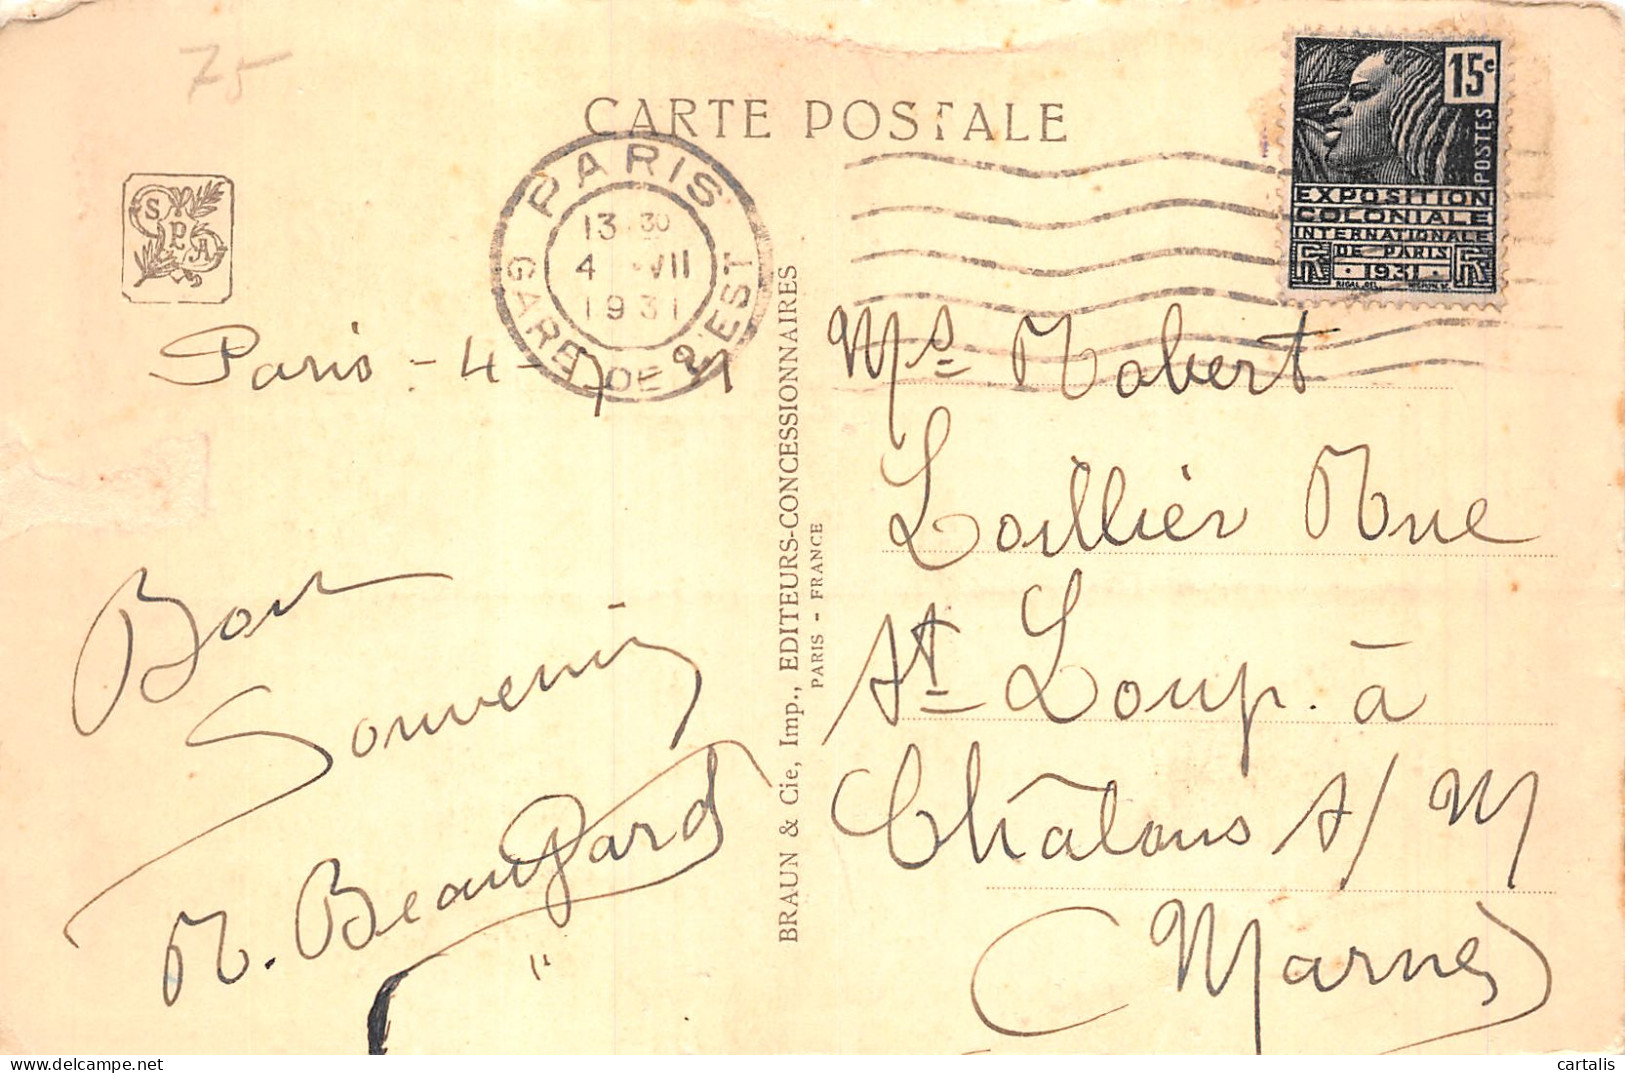 75
CARTE POSTALE
SPA
PARIS
13 30
4 VII
1931
GARE DE L'EST
15c
POSTES
EXPOSITION
COLONIALE
INTERNATIONALE
DE PARIS
1931
Paris - 4-7
Bon
Souvenir
R. Beaugard
BRAUN & Cie, Imp., EDITEURS-CONCESSIONNAIRES
PARIS - FRANCE
Mrs Robert
Loillier Rue
St Loup. à
Châlons s/M
(Marne)
cartalis